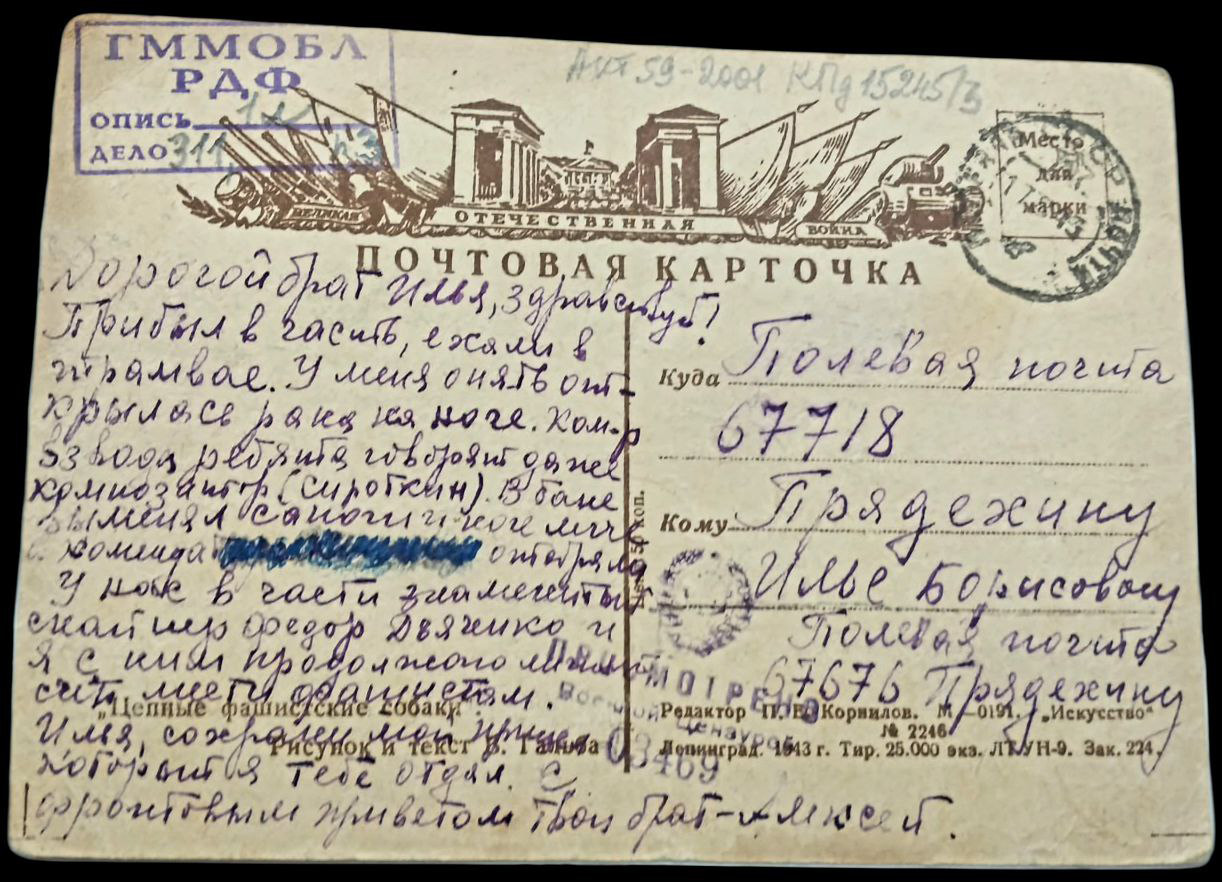 ГММОБЛ
РДФ
ОПИСЬ 1
ДЕЛО 311
Акт 59-2001 КПд 15245/3
ВЕЛИКАЯ ОТЕЧЕСТВЕННАЯ ВОЙНА
Место
для
марки
ПОЧТОВАЯ КАРТОЧКА
Дорогой брат Илья, здравствуй!
Прибыл в часть, ехали в
трамвае. У меня опять от-
крылась рана на ноге. Ком-р
взвода, ребята говорят даже
композитор (Сироткин). В бане
выменял сапоги и
отобрали
У нас в части знаменитый
снайпер Федор Дьяченко и
я с ним продолжаю личный
счёт мести фашистам.
Илья, сохрани мои
который я тебе отдал. С
фронтовым приветом твой брат - Алексей.
Куда Полевая почта
67718
Кому Прядехину
Илье Борисовичу
Полевая почта
67676 Прядехину
Цена 50 коп.
ПРОСМОТРЕНО
Военной Цензурой
03469
„Цепные фашистские собаки".
Рисунок и текст В. Гальба
Редактор П. Е. Корнилов. М—0191. „Искусство"
№ 2246
Ленинград. 1943 г. Тир. 25.000 экз. ЛТ.УН-9. Зак. 224.